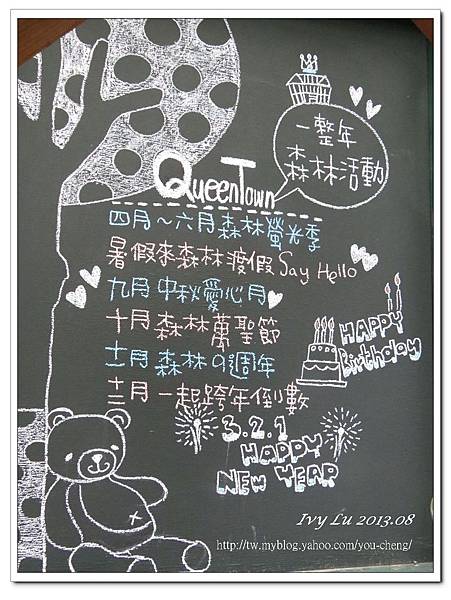 一整年
森林活動
QueenTown
四月～六月森林螢光季
暑假來森林渡假 Say Hello
九月 中秋愛心月
十月 森林萬聖節
十一月 森林の週年
HAPPY
Birthday
十二月 一起跨年倒數
3.2.1
HAPPY
NEW YEAR
Ivy Lu 2013.08
http://tw.myblog.yahoo.com/you-cheng/